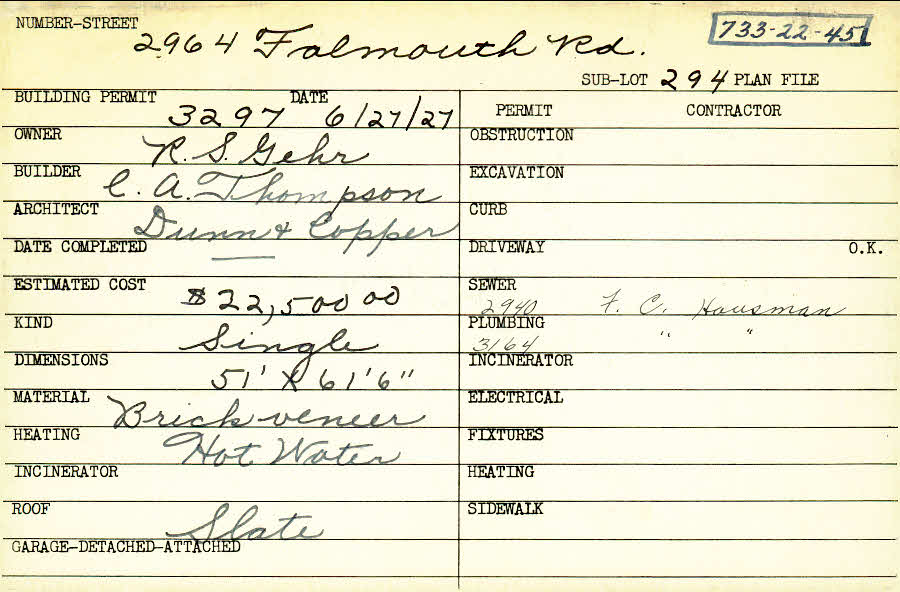 NUMBER-STREET
2964 Falmouth Rd.
733-22-45
SUB-LOT 294 PLAN FILE
BUILDING PERMIT 3297 DATE 6/27/27
PERMIT CONTRACTOR
OWNER R. S. Gehr
OBSTRUCTION
BUILDER C. A. Thompson
EXCAVATION
ARCHITECT Dunn & Copper
CURB
DATE COMPLETED —
DRIVEWAY O.K.
ESTIMATED COST $22,500 00
SEWER 2940 F. C. Hausman
KIND Single
PLUMBING 3164 " "
DIMENSIONS 51' X 61'6"
INCINERATOR
MATERIAL Brick veneer
ELECTRICAL
HEATING Hot Water
FIXTURES
INCINERATOR
HEATING
ROOF Slate
SIDEWALK
GARAGE-DETACHED-ATTACHED